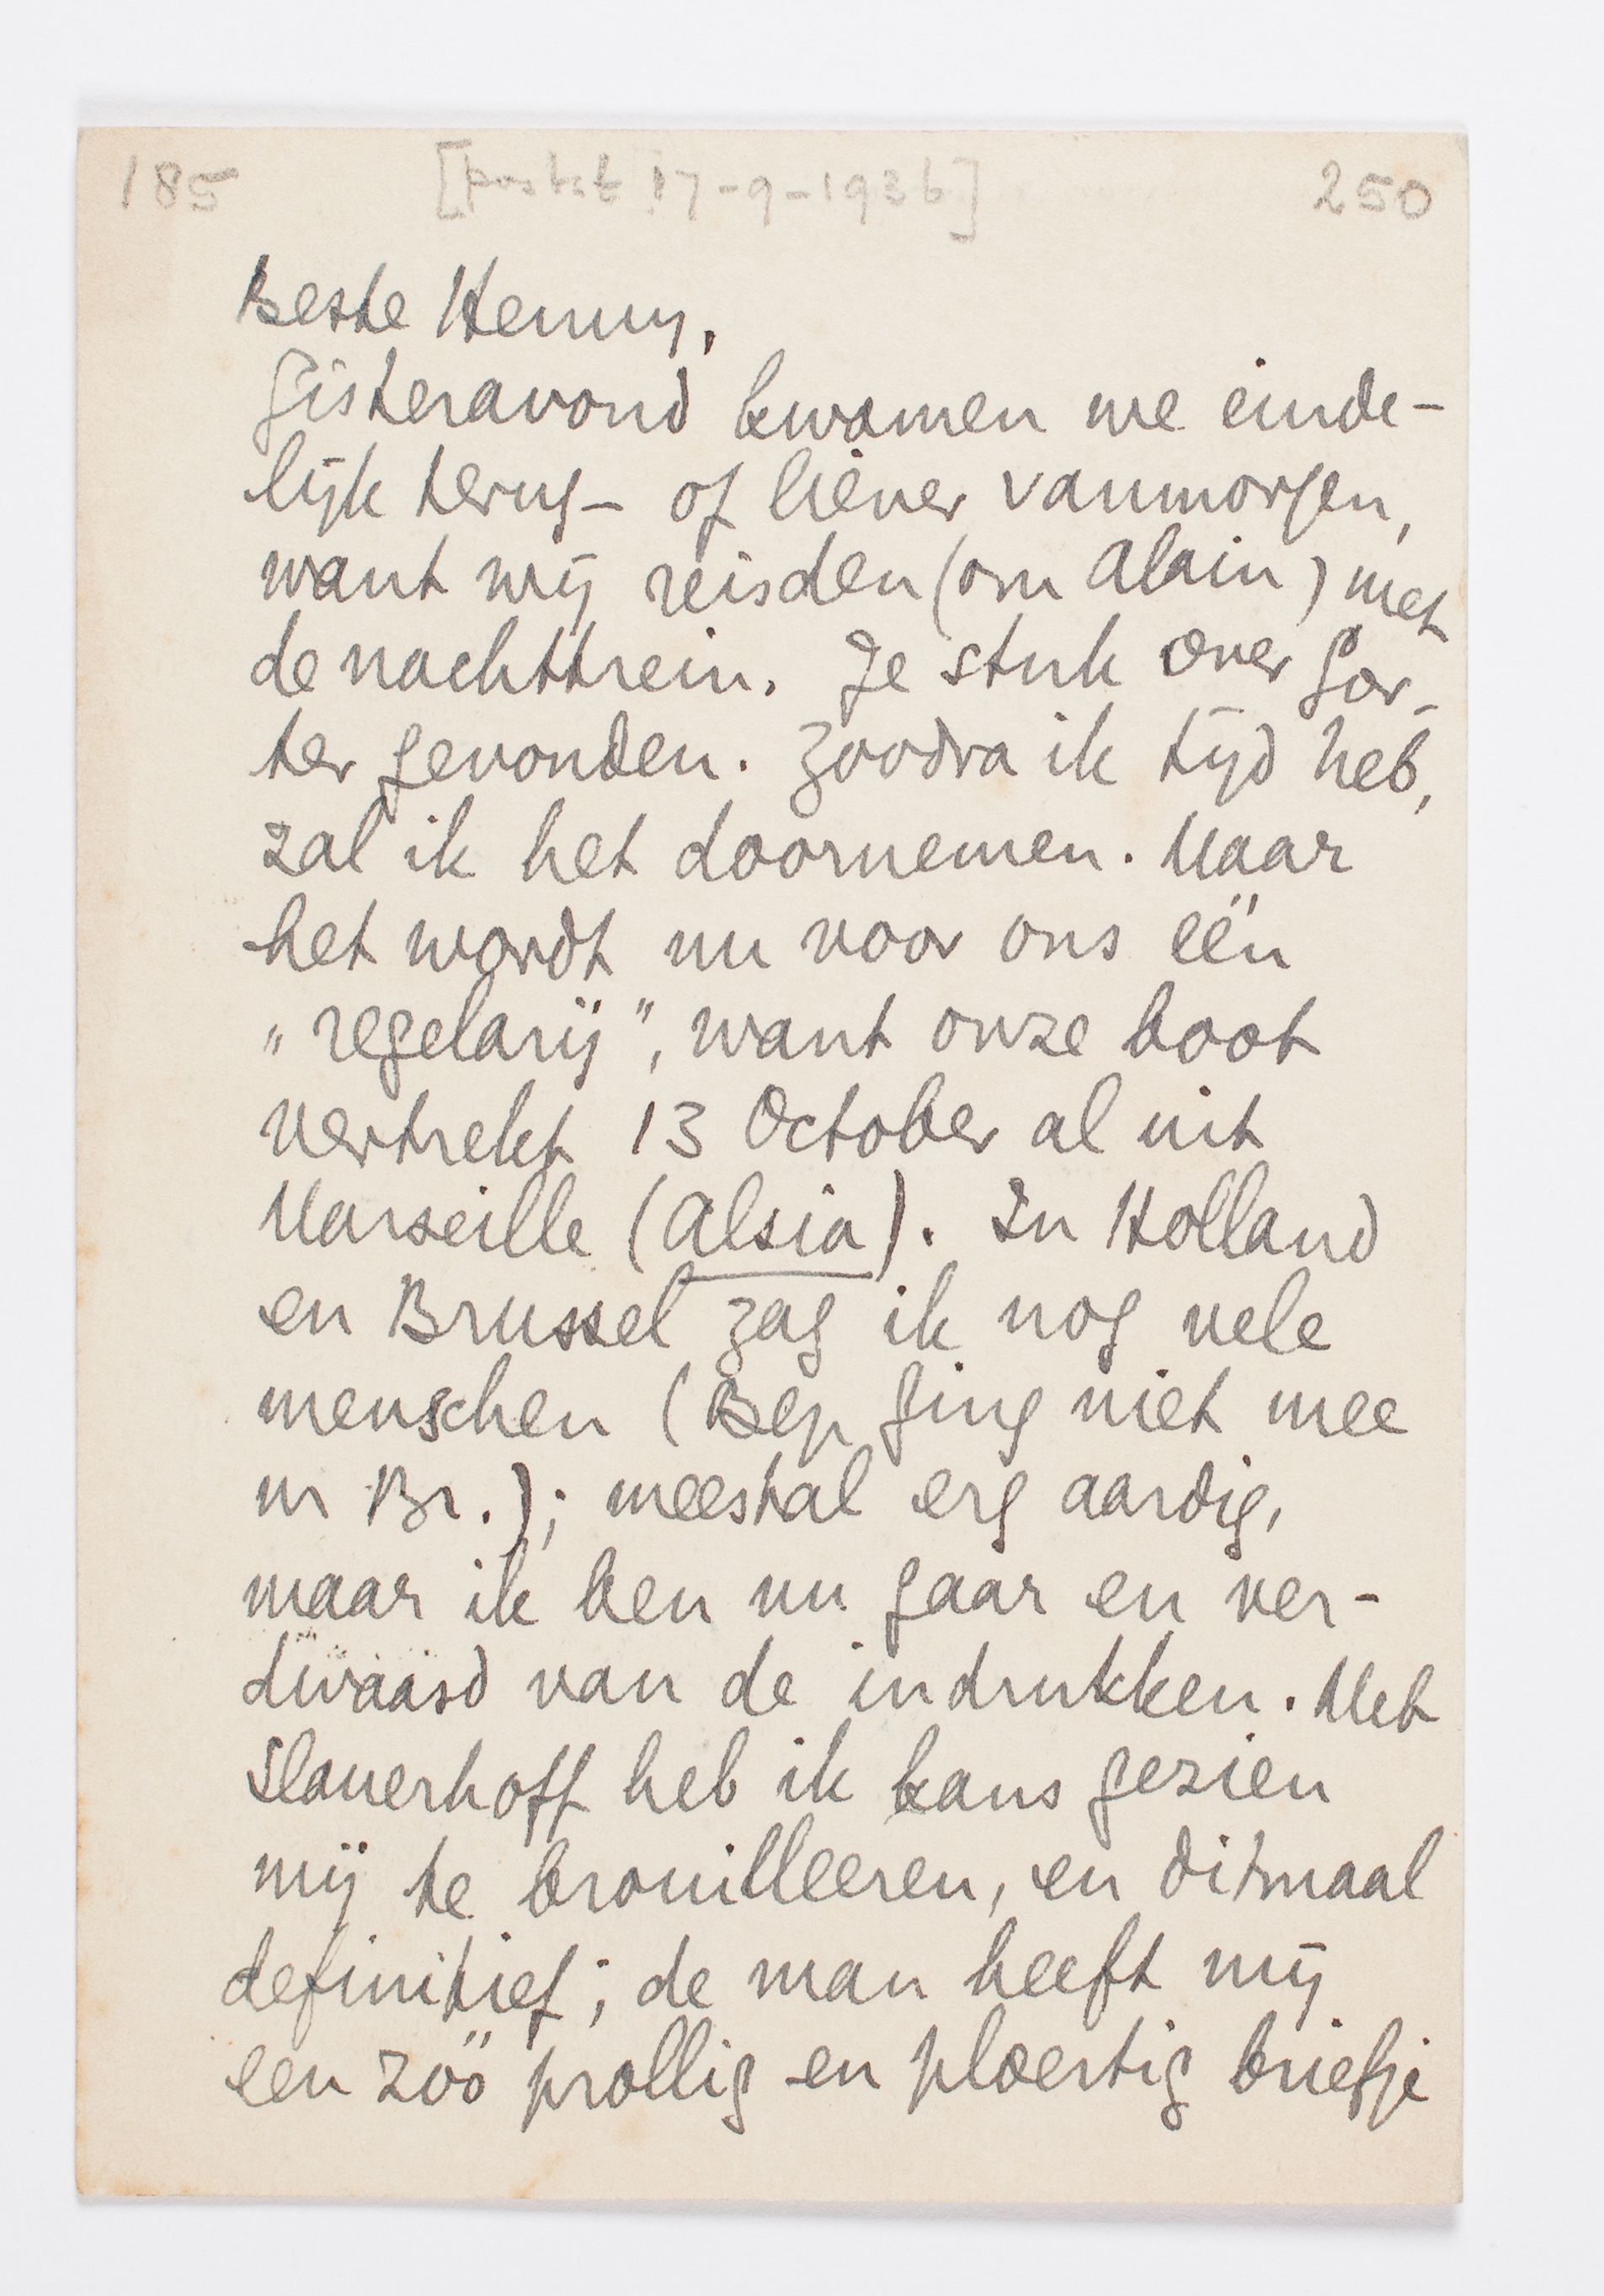 185 [postst 17-9-1936] 250
Beste Henny,
Gisteravond kwamen we einde-
lijk terug – of liever vanmorgen,
want wij reisden (om Alain) met
de nachttrein. Je stuk over Gor-
ter gevonden. Zoodra ik tijd heb,
zal ik het doornemen. Maar
het wordt nu voor ons één
„regelarij", want onze boot
vertrekt 13 October al uit
Marseille (Alsia). In Holland
en Brussel zag ik nog vele
menschen (Bep ging niet mee
in Br.); meestal erg aardig,
maar ik ben nu gaar en ver-
dwaasd van de indrukken. Met
Slauerhoff heb ik kans gezien
mij te brouilleeren, en ditmaal
definitief; de man heeft mij
een zóó prollig en ploertig briefje